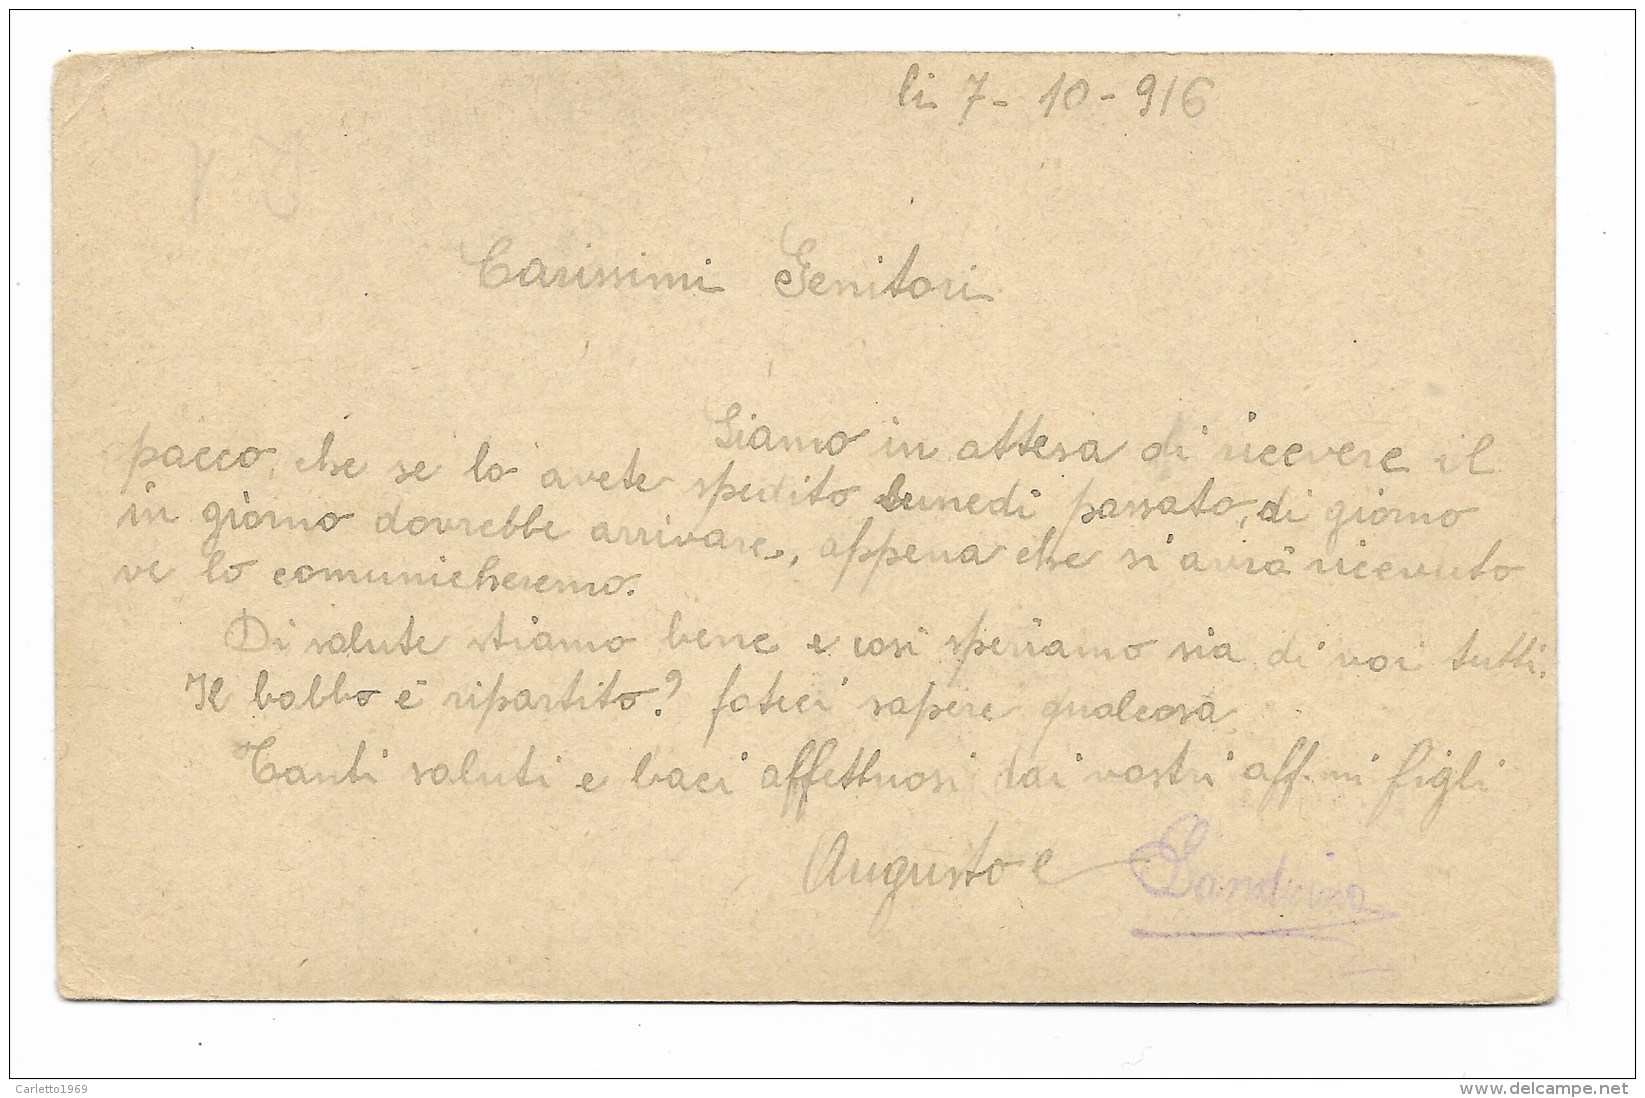 li 7- 10 - 916
Carissimi Genitori
Siamo in attesa di ricevere il
pacco, che se lo avete spedito lunedi passato, di giorno
in giorno dovrebbe arrivare, appena che si avrà ricevuto
ve lo comunicheremo.
Di salute stiamo bene e cosi speriamo sia di voi tutti.
Il babbo è ripartito? fateci sapere qualcosa
Tanti saluti e baci affettuosi dai vostri aff.mi figli
Augusto e Sandrina
Carletto1969
www.delcampe.net